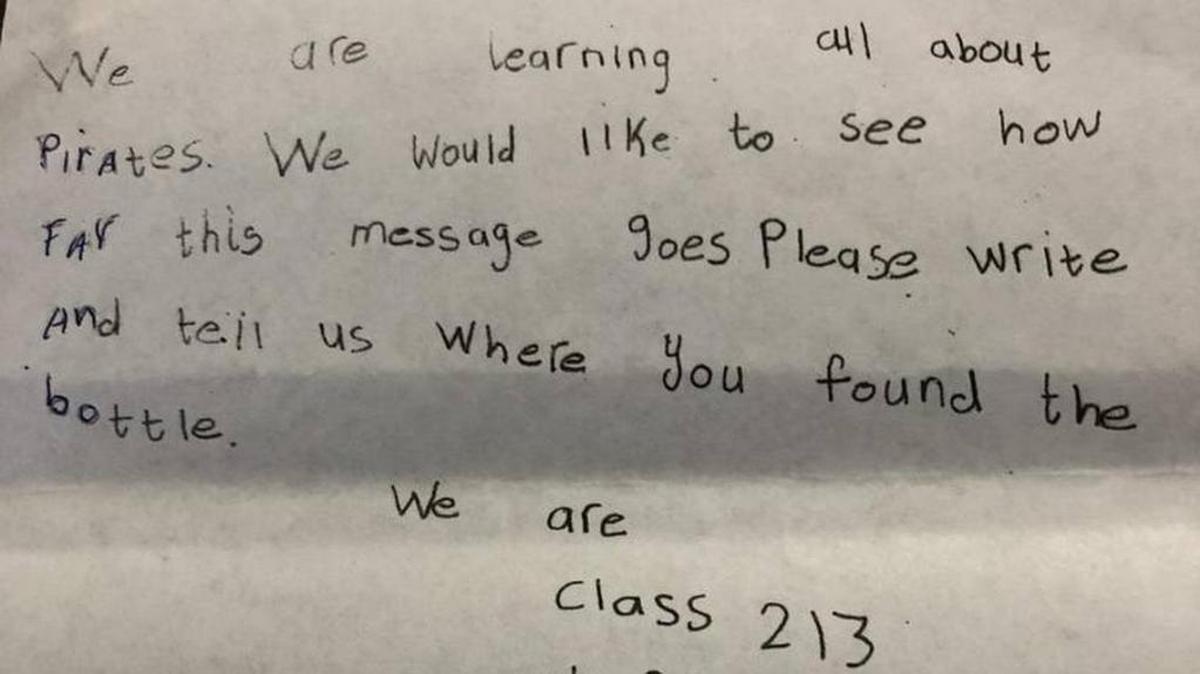 We are learning all about
Pirates. We would like to see how
FAr this message goes Please write
And tell us where you found the
bottle.
We are
Class 213